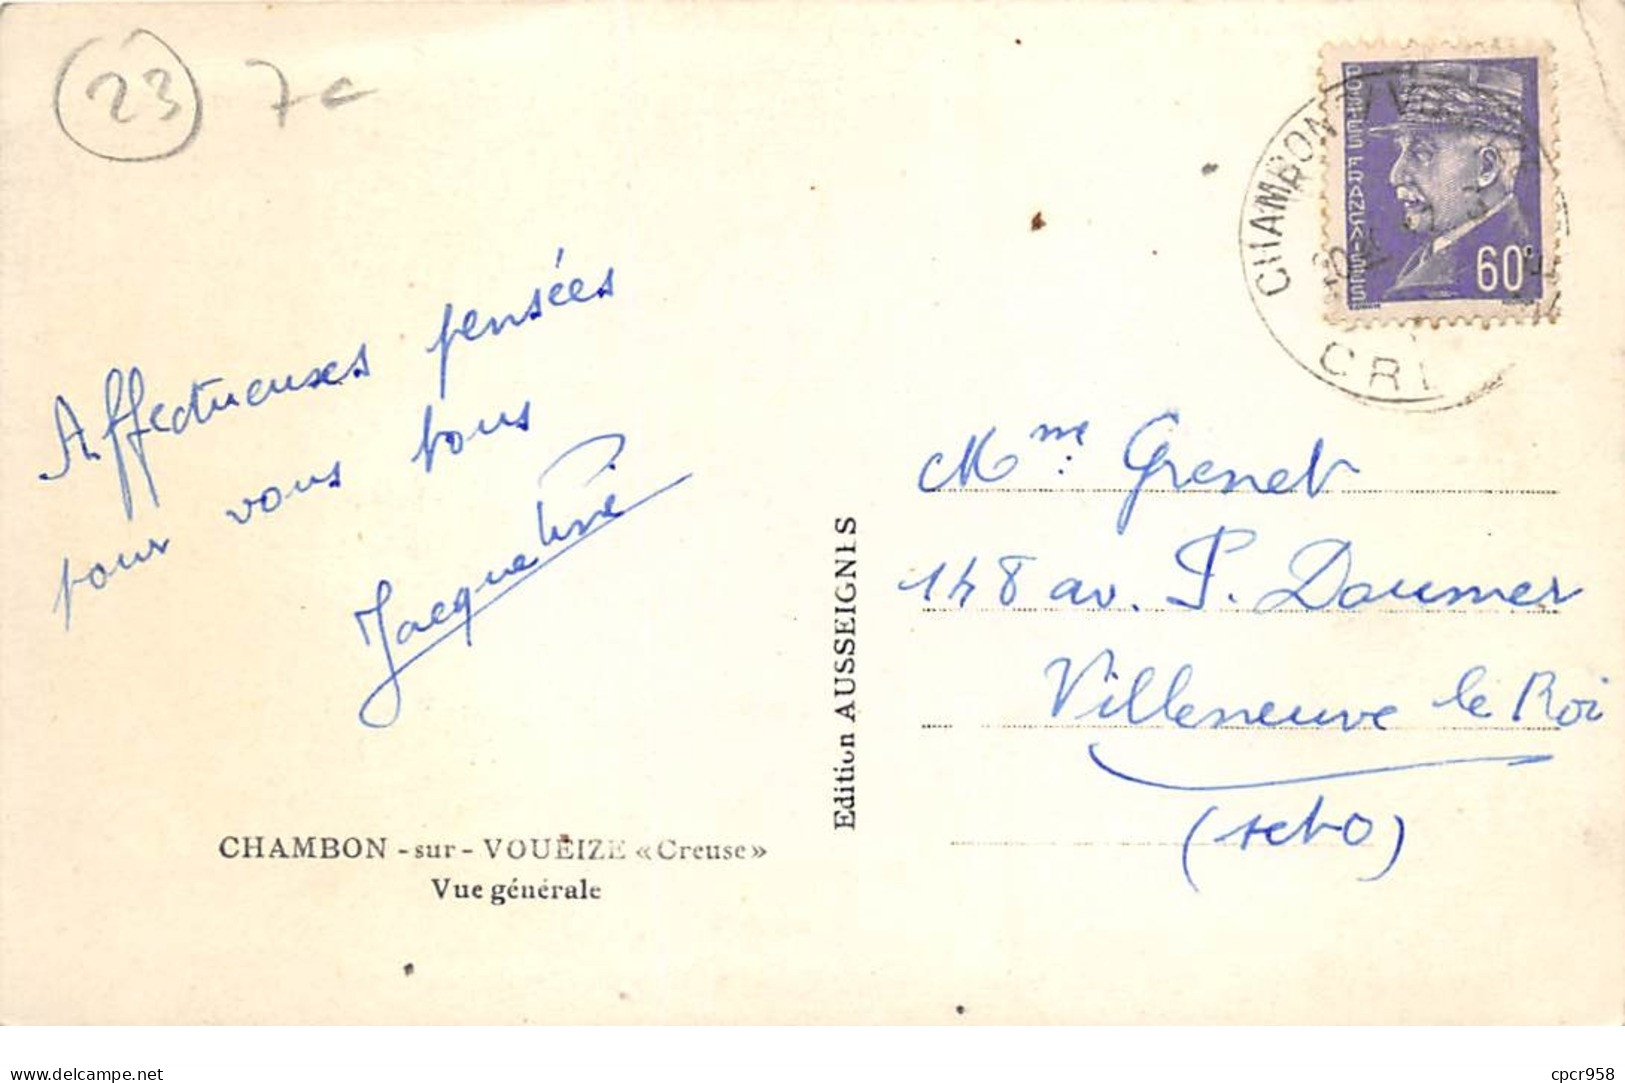 23 7c
CHAMBON S/ VO
CRE
POSTES FRANÇAISES
60
Affectueuses pensées
pour vous tous
Jacqueline
Mme Grenet
148 av. P. Doumer
Villeneuve le Roi
(s et O)
Edition AUSSEIGNIS
CHAMBON -sur- VOUEIZE «Creuse»
Vue générale
delcampe.net
cpcr958